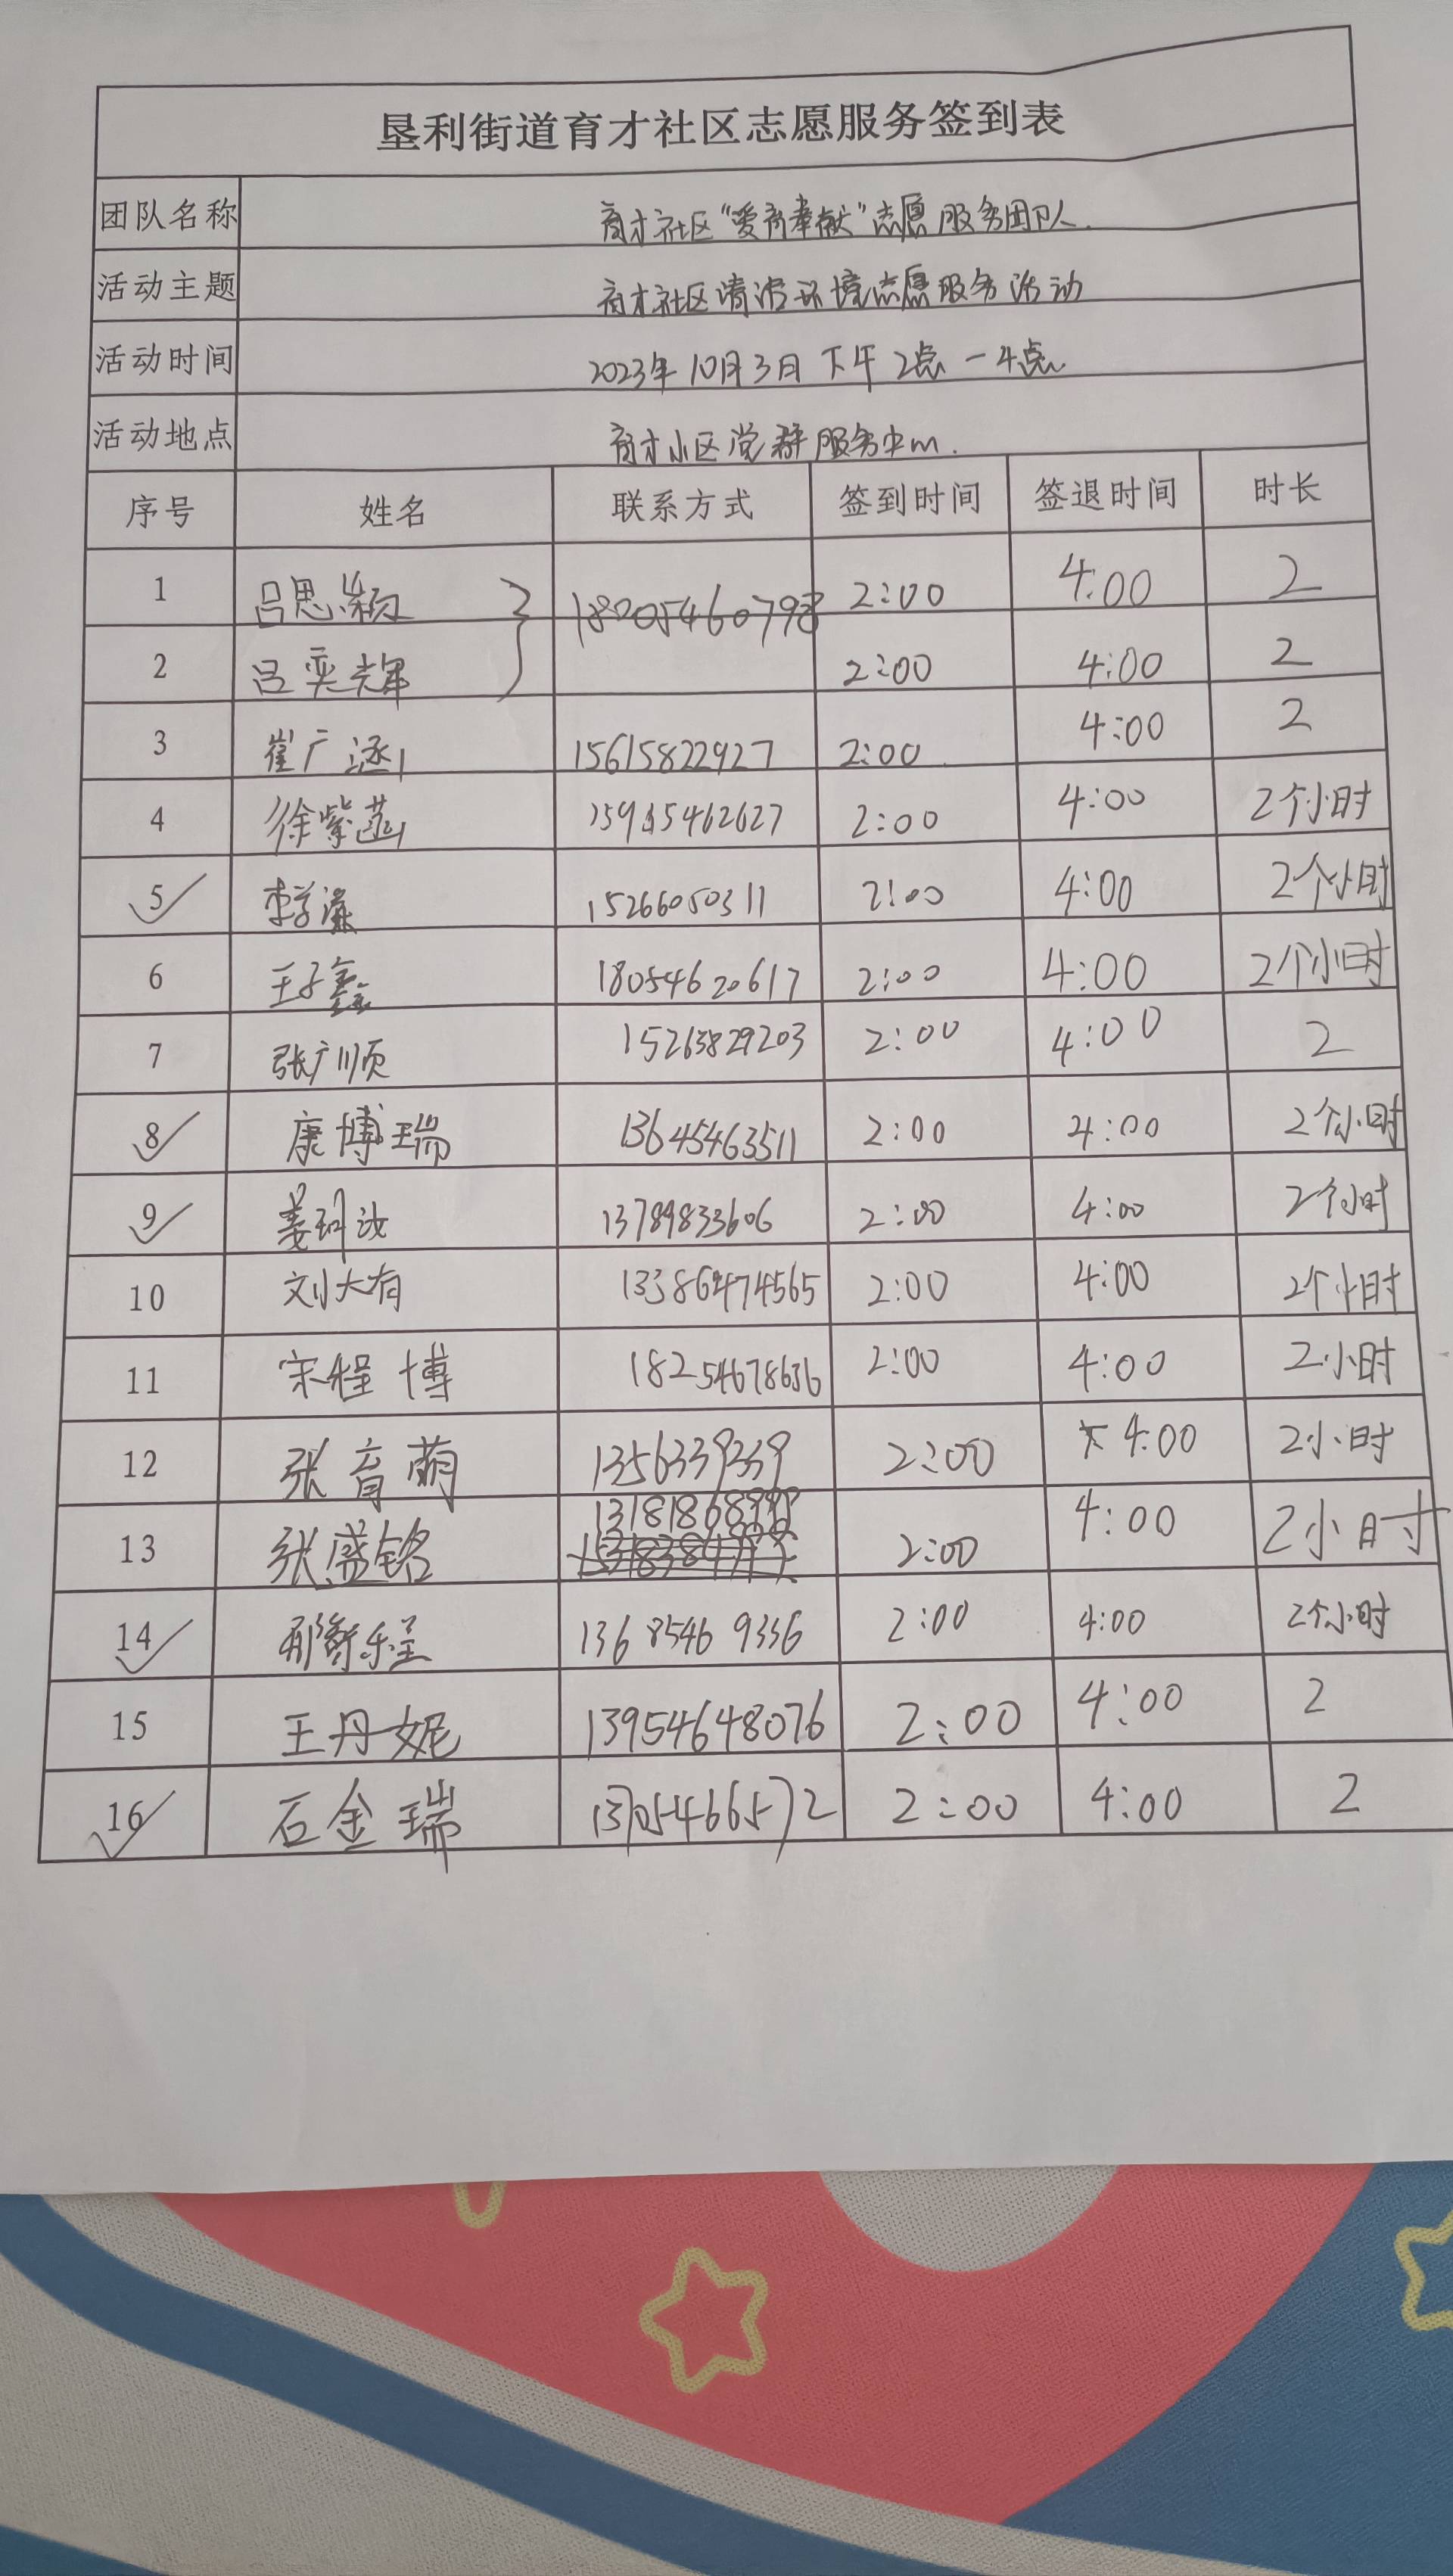 垦利街道育才社区志愿服务签到表
团队名称 育才社区"爱育奉献"志愿服务团队.
活动主题 育才社区清洁环境志愿服务活动
活动时间 2023年10月3日下午2点-4点
活动地点 育才小区党群服务中心.
序号 姓名 联系方式 签到时间 签退时间 时长
1 吕思颖 2:00 4:00 2
2 吕奕辉 2:00 4:00 2
3 崔广涵 15615822927 2:00 4:00 2
4 徐紫菡 2:00 4:00 2个小时
5 15266050311 2:00 4:00 2个小时
6 王子鑫 18054620617 2:00 4:00 2个小时
7 张广顺 15263829203 2:00 4:00 2
8 康博瑞 13645463511 2:00 4:00 2个小时
9 姜珂汝 13789833606 2:00 4:00 2个小时
10 刘大有 2:00 4:00 2个小时
11 宋程博 18254678636 2:00 4:00 2小时
12 张育萌 1356339339 2:00 4:00 2小时
13 张盛铭 2:00 4:00 2小时
14 13685469336 2:00 4:00 2个小时
15 王丹妮 13954648076 2:00 4:00 2
16 石金瑞 13705466572 2:00 4:00 2